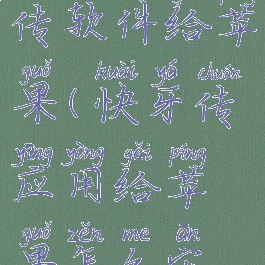 传软件给苹
guǒ kuài yá chuán
果(快牙传
yīng yòng gěi píng
应用给苹
guǒ zěn me ān
果怎么安